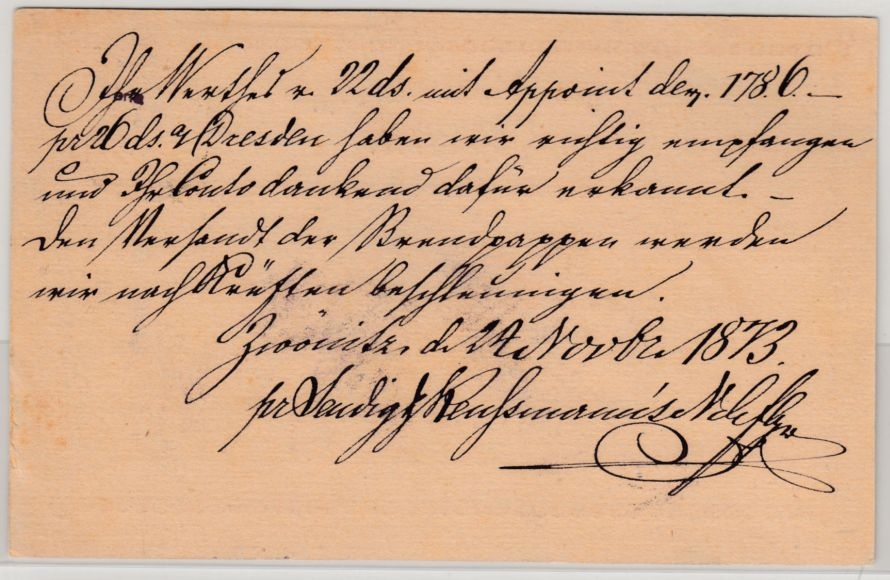 Ihr Werthes v. 22 ds. mit Appoint der. 178.6.—
pr 26 ds. a/Dresden haben wir richtig empfangen
und Ihr Conto dankend dafür erkannt. —
Den Versandt der Brendpappen werden
wir nach Kräften beschleunigen.
Zwönitz, d. 24 Novbr. 1873.
pr